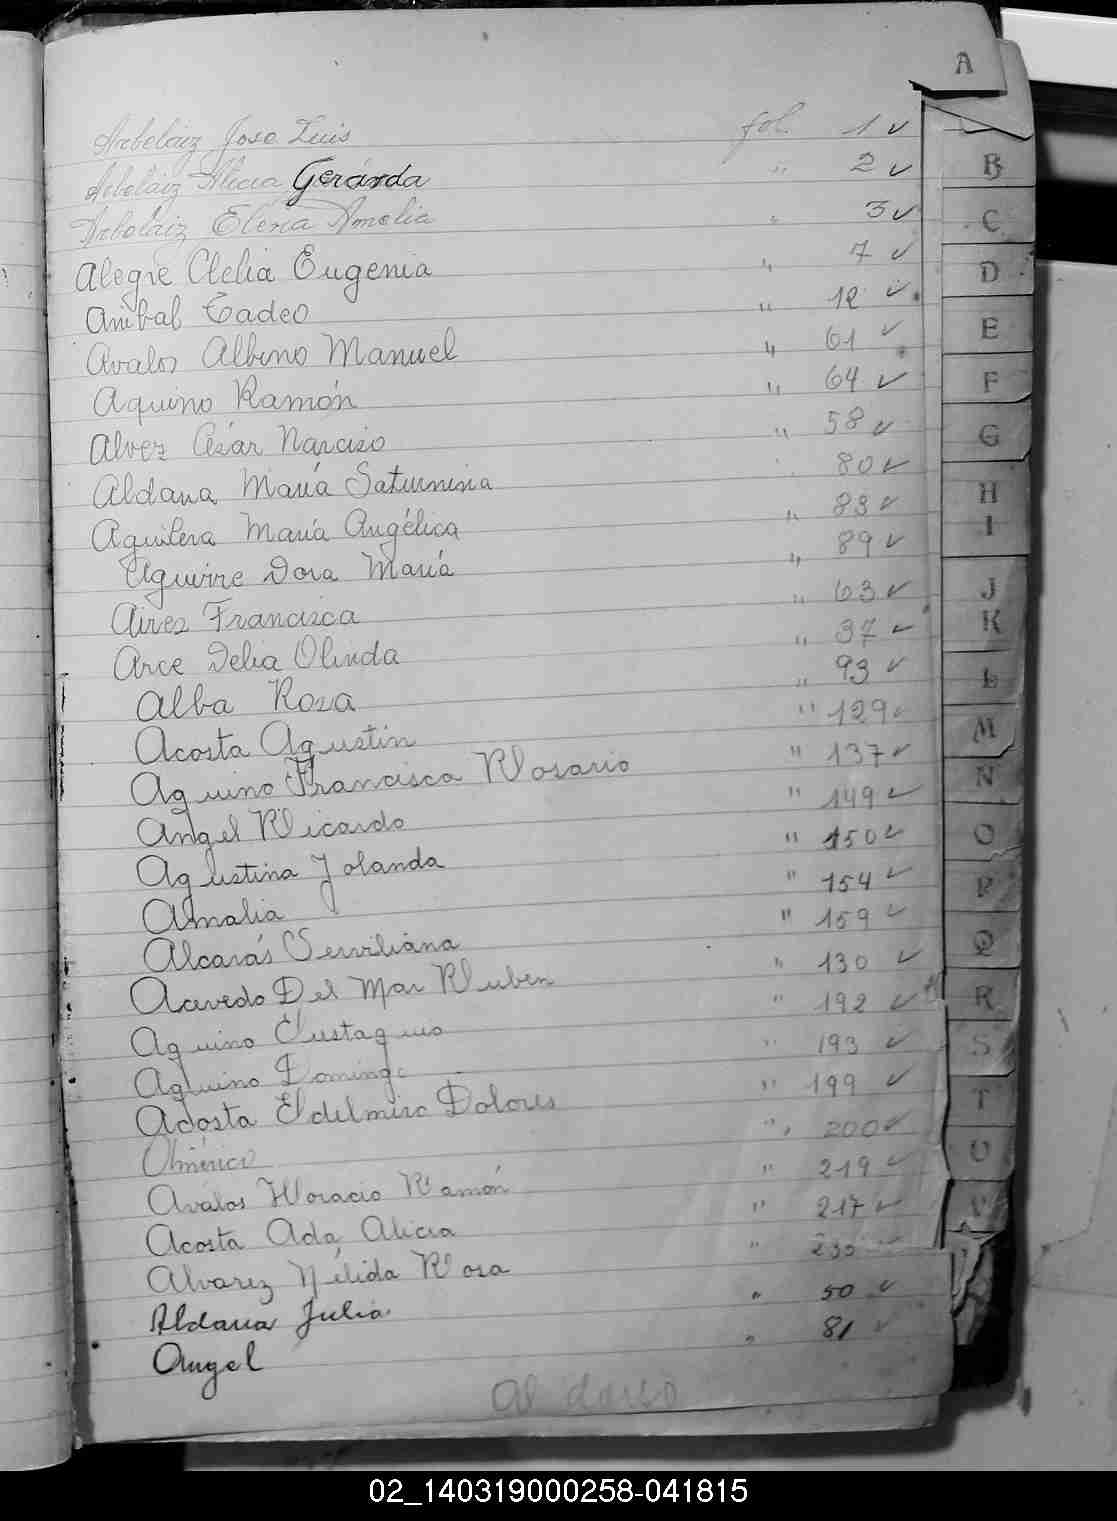 A
Arbelaiz Jose Luis fol. 1 ✓
Arbelaiz Alicia Gerarda " 2 ✓
Arbelaiz Elena Amelia " 3 ✓
Alegre Clelia Eugenia " 7 ✓
Anibal Tadeo " 12 ✓
Avalos Albino Manuel " 61 ✓
Aquino Ramón " 64 ✓
Alvez César Narciso " 58 ✓
Aldana María Saturnina " 80 ✓
Aguilera María Angélica " 83 ✓
Aguirre Dora María " 89 ✓
Aires Francisca " 63 ✓
Arce Delia Olinda " 37 ✓
Alba Rosa " 93 ✓
Acosta Agustín " 129 ✓
Aquino Francisca Rosario " 137 ✓
Angel Ricardo " 149 ✓
Agustina Yolanda " 150 ✓
Amalia " 154 ✓
Alcarás Serviliana " 159 ✓
Acevedo Del Mar Ruben " 130 ✓
Aquino Eustaquio " 192 ✓
Aquino Domingo " 193 ✓
Acosta Edelmiro Dolores " 199 ✓
" 200 ✓
Avalos Horacio Ramón " 219 ✓
Acosta Ada Alicia " 217 ✓
Alvarez Nélida Rosa " 235 ✓
Aldana Julia " 50 ✓
Angel " 81 ✓
Al dorso
B
C
D
E
F
G
H
I
J
K
L
M
N
O
P
Q
R
S
T
U
V
02_140319000258-041815